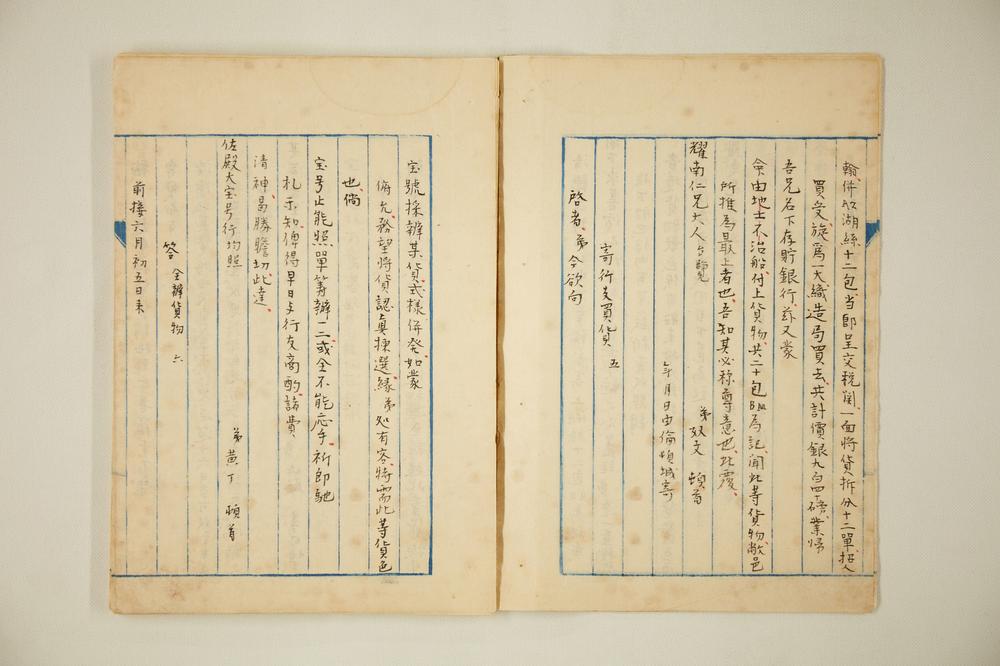 翰、併收湖絲十二包、当即呈交税関、一面将貨拆分十二單、招人
買受、旋為一大織造局買去、共計價銀九百四十磅、業帰
吾兄名下存貯銀行、茲又蒙
命由地士不治船、付上貨物、共二十包、臨局記、聞此等貨物、敝邑
所推為最上者也、吾知其必称尊意也、此覆、
弟奴文 頓首
耀南仁兄大人台覧
年月日由倫頓城寄
寄行友買貨 五
啓者、弟今欲向
宝號採辦某貨、式樣併発、如蒙
俯允、務望将貨認真揀選、縁弟処有客、特需此等貨色
也、倘
宝号止能照單籌辦一二、或全不能応手、祈即馳
札示知、俾得早日与行友商酌、諸費
清神、曷勝瞻切、此達、
弟黄丁 頓首
佐殿大宝号行均照
答 全辦貨物 六
前接六月初五日来